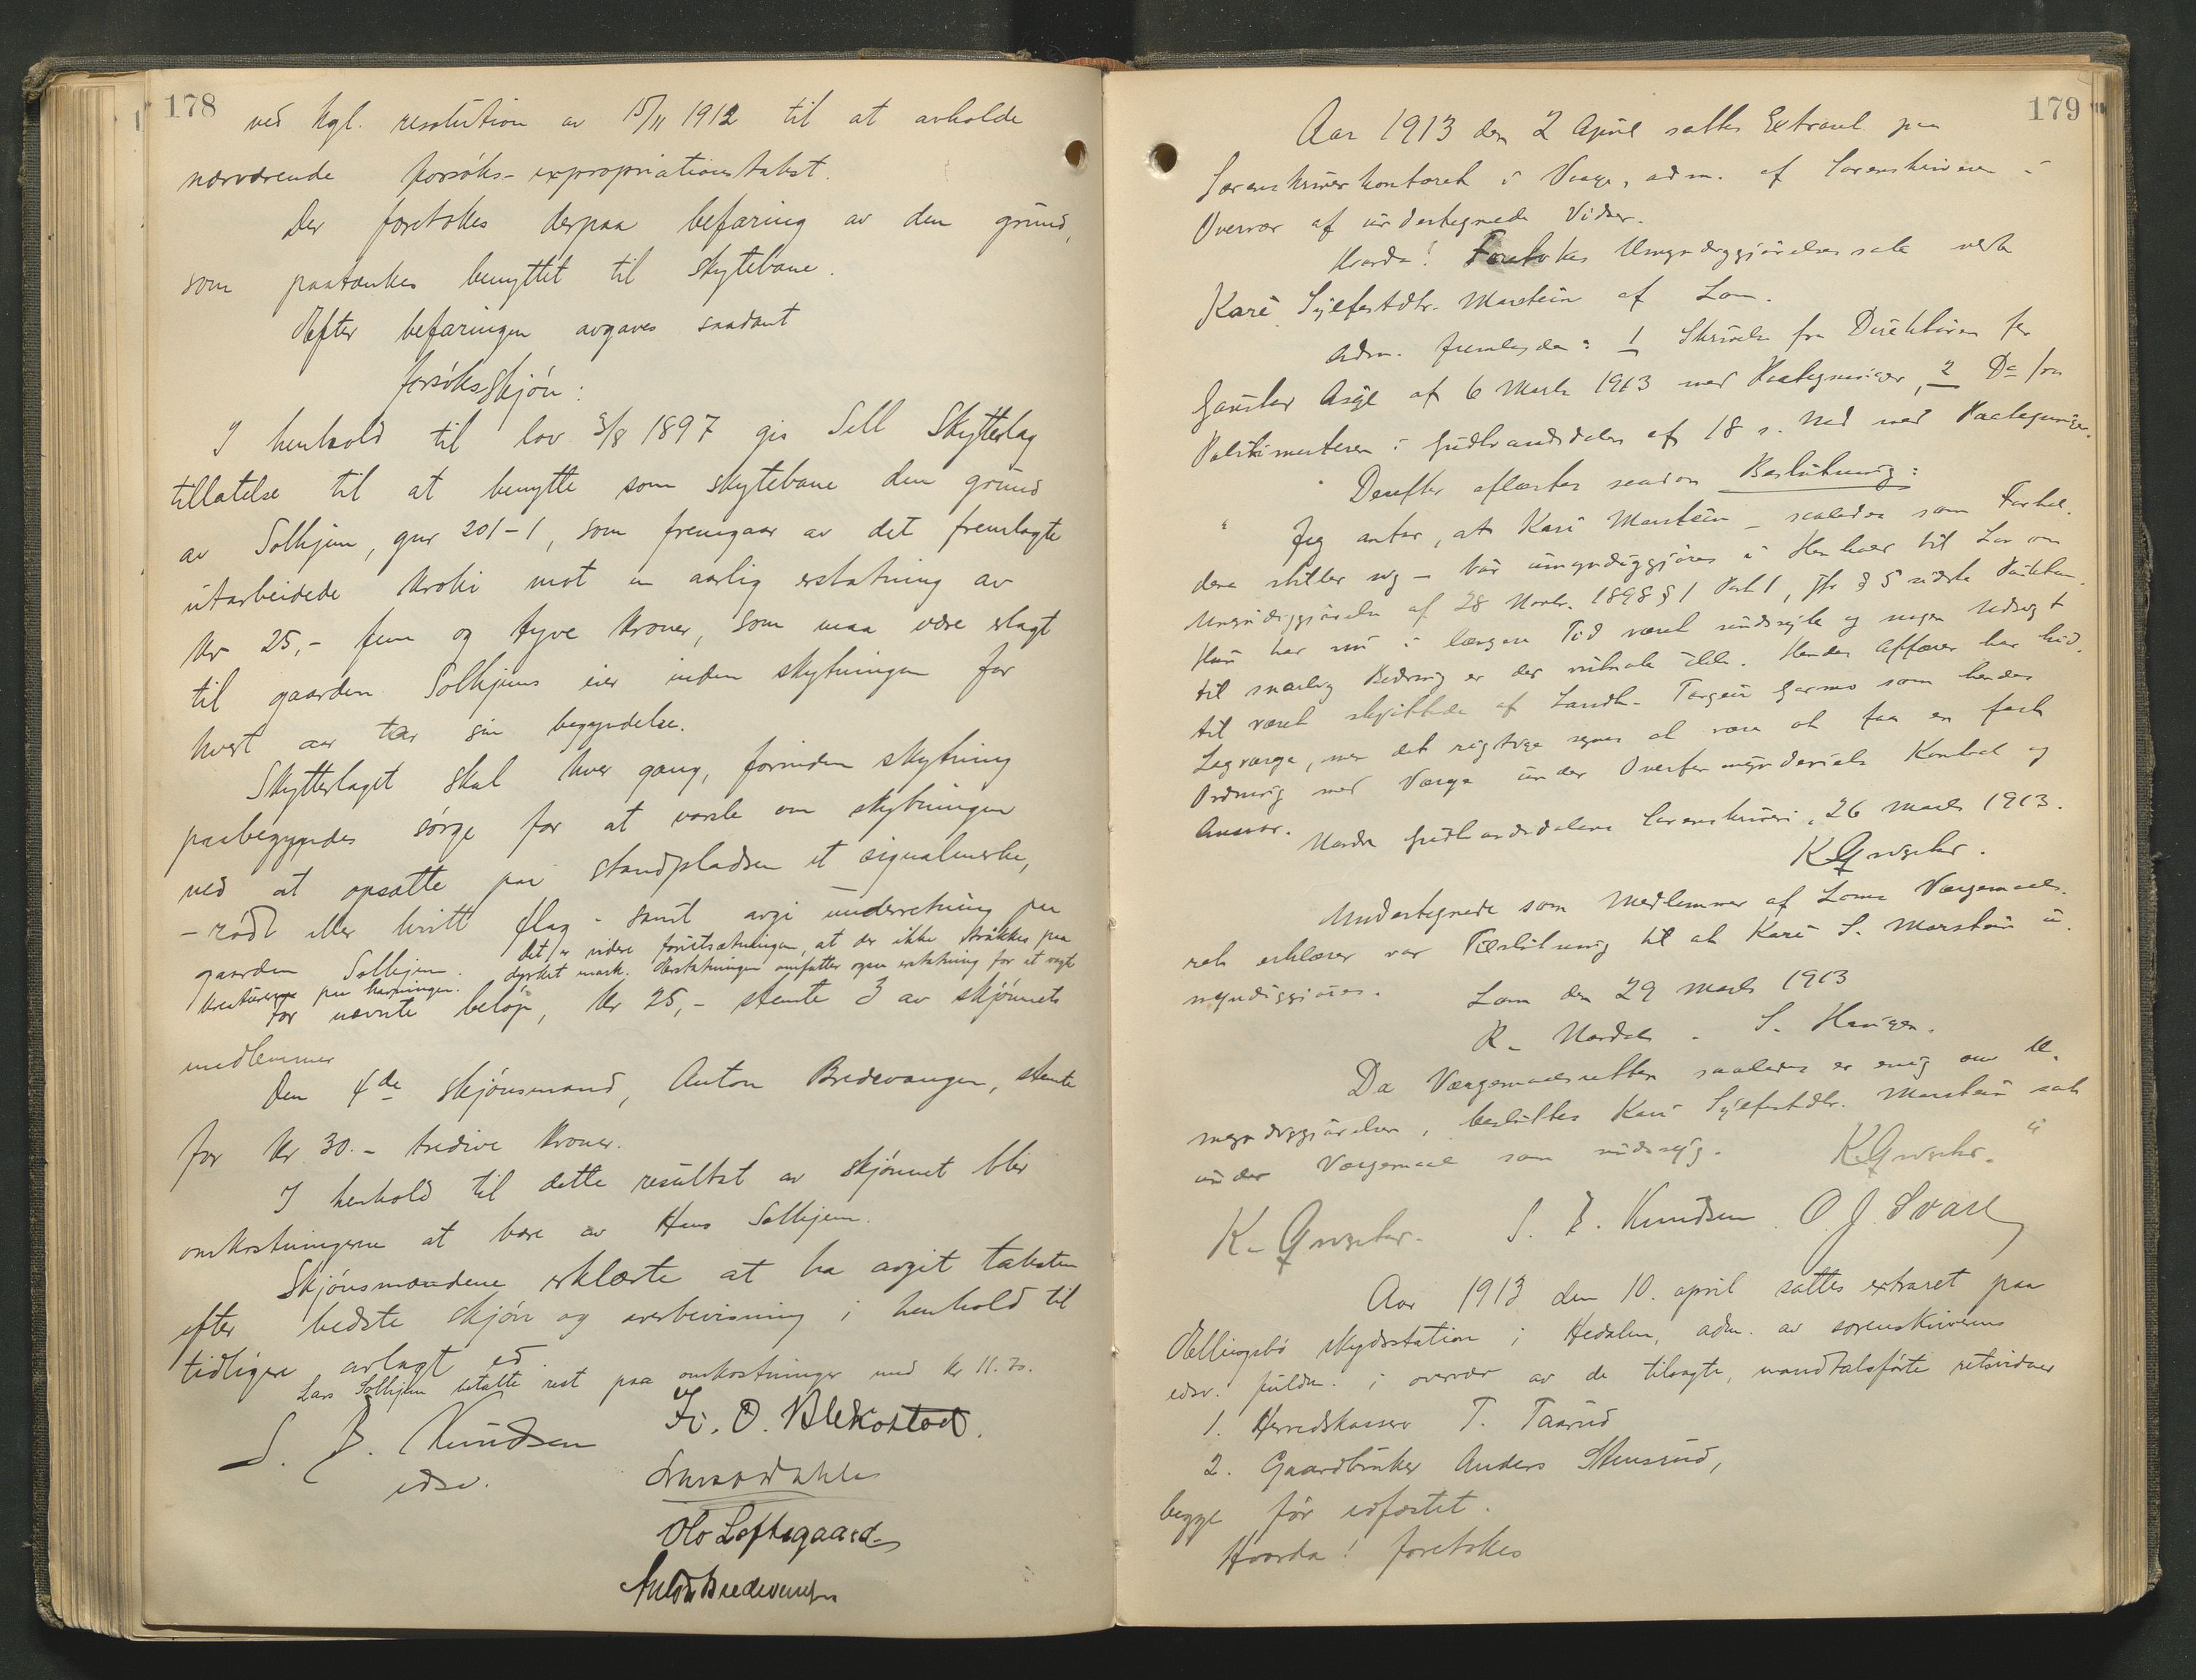 178
ved kgl. resolution av 15/11 1912 til at avholde
nærværende forsøks-expropriationstakst.
Der foretokes derpaa befaring av den grund,
som paatænkes benyttet til skytebane.
Efter befaringen avgaves saadant
forsøksskjøn:
I henhold til lov 3/8 1897 gis Sell Skytterlag
tillatelse til at benytte som skytebane den grund
av Solhjem, gnr 201-1, som fremgaar av det fremlagte
utarbeidede kroki mot en aarlig erstatning av
kr 25,- fem og tyve kroner, som maa være erlagt
til gaarden Solhjems eier inden skytningen for
hvert aar tar sin begyndelse.
Skytterlaget skal hver gang, forinden skytning
paabegyndes sørge for at varsle om skytningen
ved at opsætte paa standpladsen et signalmerke,
- rødt eller hvitt flag - samt avgi underretning paa
gaarden Solhjem. Det er videre forutsætningen, at der ikke trækkes paa
dyrket mark. Erstatningen omfatter ogsaa erstatning for at vogte
kreaturene paa havningen.
For nævnte beløp, kr 25,- stemte 3 av skjønnets
medlemmer
Den 4de skjønsmand, Anton Bredevangen, stemte
for kr 30.- tredive kroner.
I henhold til dette resultat av skjønnet blir
omkostningerne at bære av Hans Solhjem.
Skjønsmændene erklærte at ha avgit taksten
efter bedste skjøn og overbevisning i henhold til
tidligere avlagt ed
Lars Solhjem betalte rest paa omkostninger med kr 11.70.
S. B. Knudsen
edsv.
Fr. O. Blekastad.
Olo Loftsgaard
Anton Bredevangen
179
Aar 1913 den 2 April sattes Extraret paa
Sorenskriverkontoret i Vaage, adm. af Sorenskriveren i
Overvær af undertegnede Vidner.
Hvorda! Foretokes Umyndiggjørelsessak vedk
Kari Sylfestdtr. Marstein af Lom.
Adm. fremlagde: 1 Skrivelse fra Direktøren for
Gaustad Asyl af 6 Marts 1913 med Paategninger, 2 Do fra
Politimesteren i Gudbrandsdalen af 18 s. Md med Paategninger.
Derefter oplæstes saadan Beslutning:
" Jeg antar, at Kari Marstein - saaledes som Forhol-
dene stiller sig - bør umyndiggjøres i Henhold til Lov om
Umyndiggjørelse af 28 Novbr. 1898 § 1 Post 1, jfr § 5 sidste Punktum.
Hun har nu i længere Tid været sindssyk og nogen Udsigt
til snarlig Bedring er der vistnok ikke. Hendes Affærer har hid-
til været skjøttede af Landh. Torgeir Garmo som hendes
Lagværge, men det rigtige synes at være at faa en fast
Ordning med Værge under Overformynderiets Kontrol og
Ansvar. Nordre Gudbrandsdalens Sorenskriveri, 26 Marts 1913.
Undertegnede som Medlemmer af Loms Værgemaals-
ret erklærer vor Tilslutning til at Kari S. Marstein u-
myndiggjøres. Lom den 29 Marts 1913
R. Nordal . S. Haugen.
Da Værgemaalsretten saaledes er enig om U-
myndiggjørelsen, besluttes Kari Sylfestdtr. Marstein sat
under Værgemaal som sindssyg. "
S. B. Knudsen O. J. Svare
Aar 1913 den 10. april sattes extraret paa
Ellingsbø skydsstation i Hedalen, adm. av sorenskriverens
edsv. fuldm. i overvær av de tilsagte, mandtalsførte retsvidner
1. Herredskasserer T. Taarud
2. Gaardbruker Anders Stensrud,
begge før edfæstet.
Hvorda! foretokes